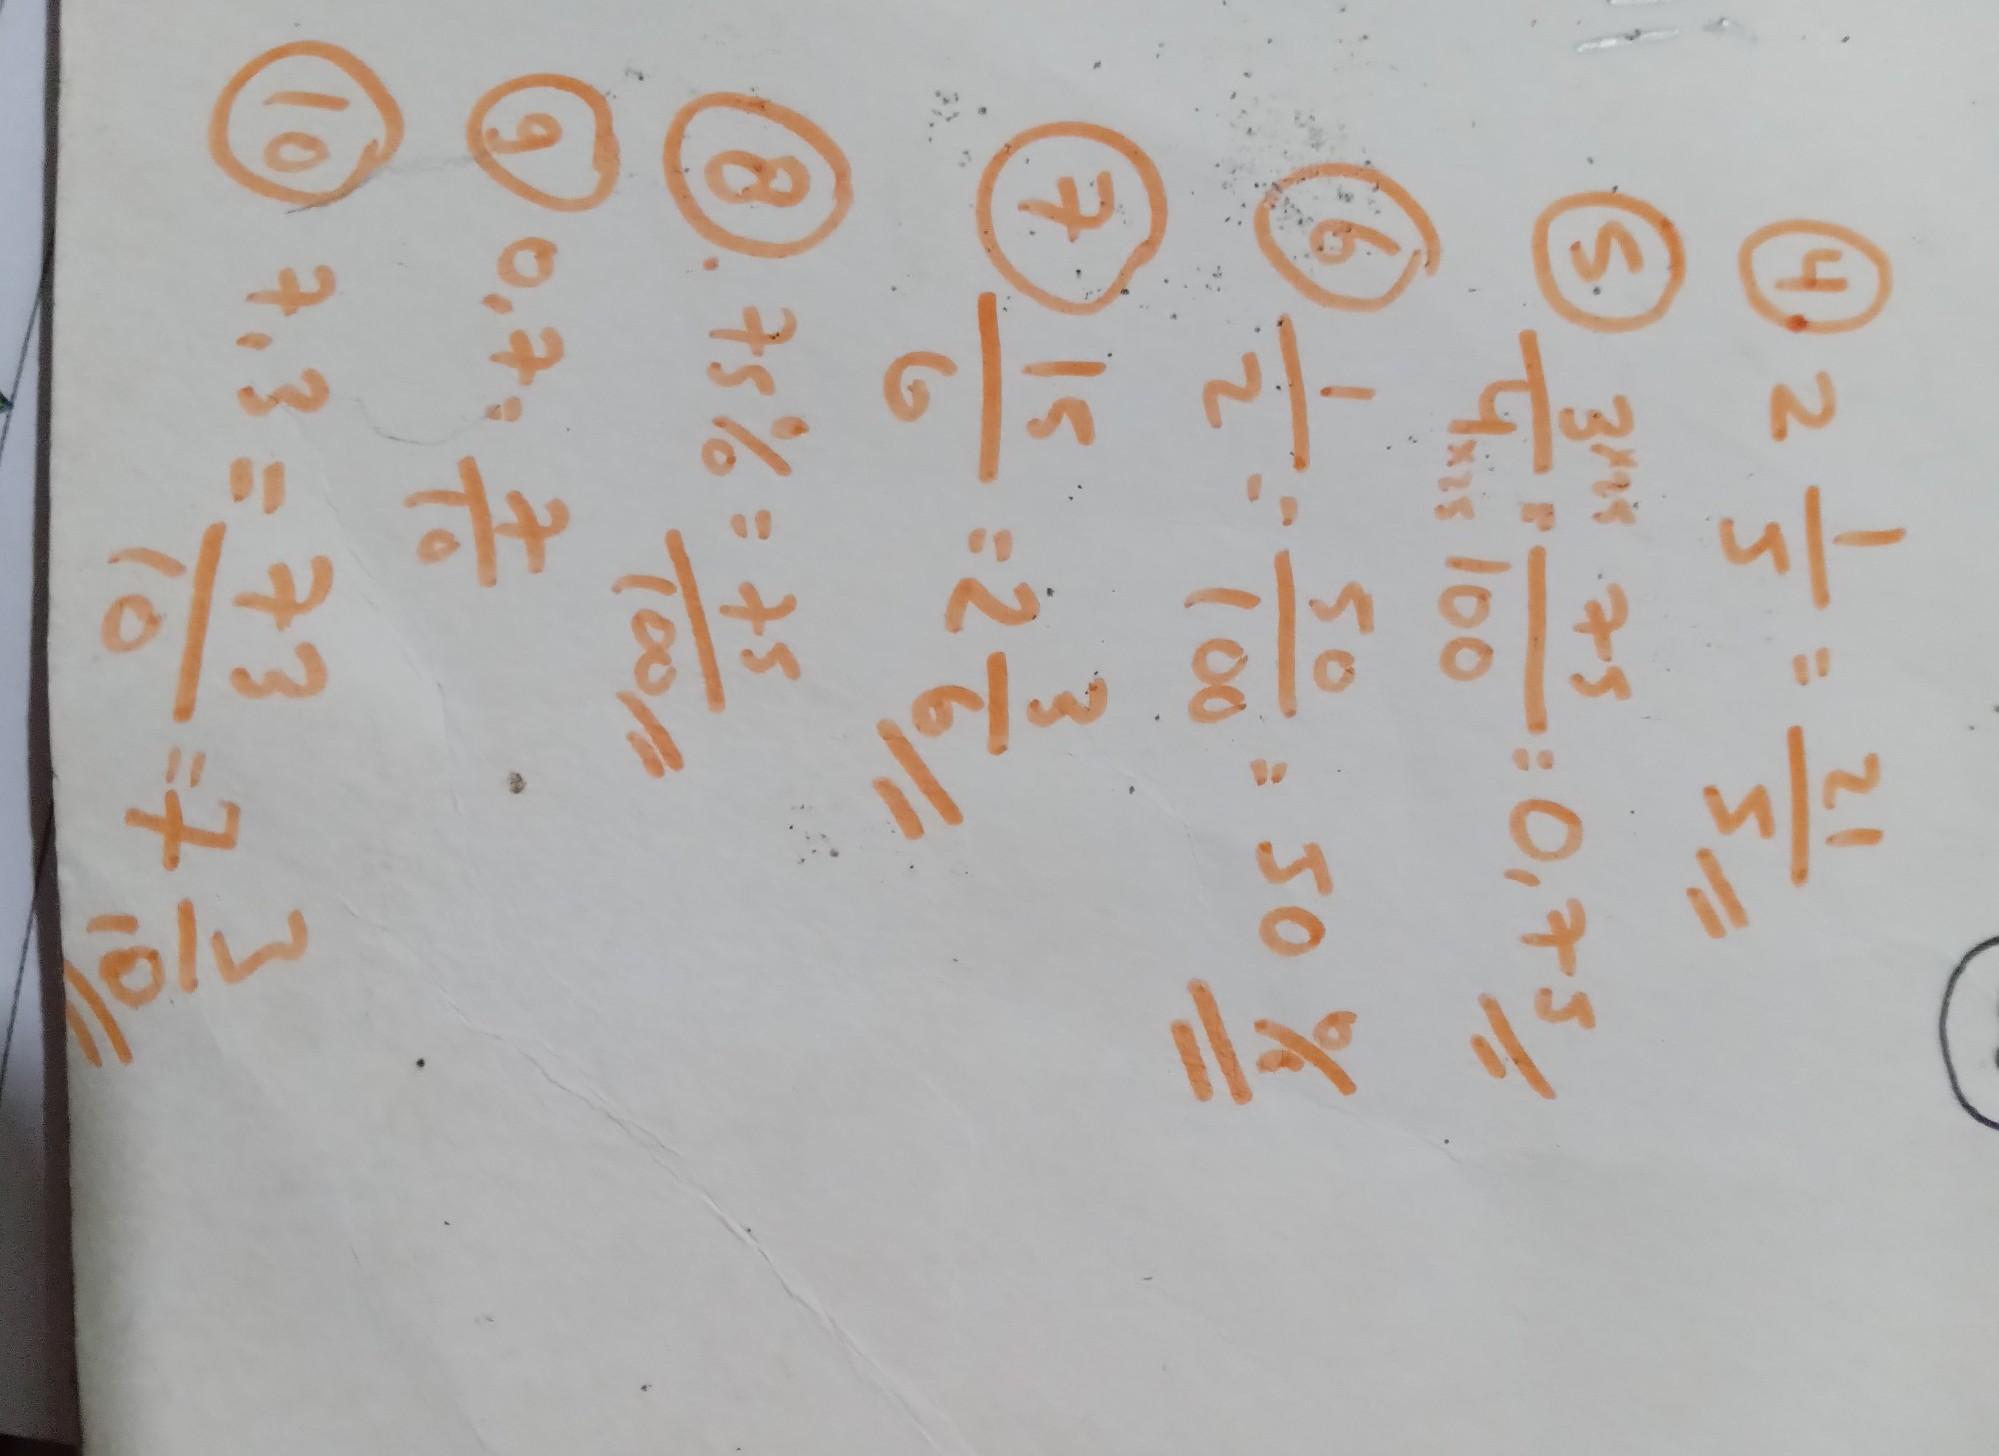 4. 2 1/5 = 21/5
5 3×25/4×25 = 75/100 = 0,75
6 1/2 = 50/100 = 50 %
7 15/6 = 2 3/6
8. 75% = 75/100
9 0,7 = 7/10
10 7,3 = 73/10 = 7 3/10